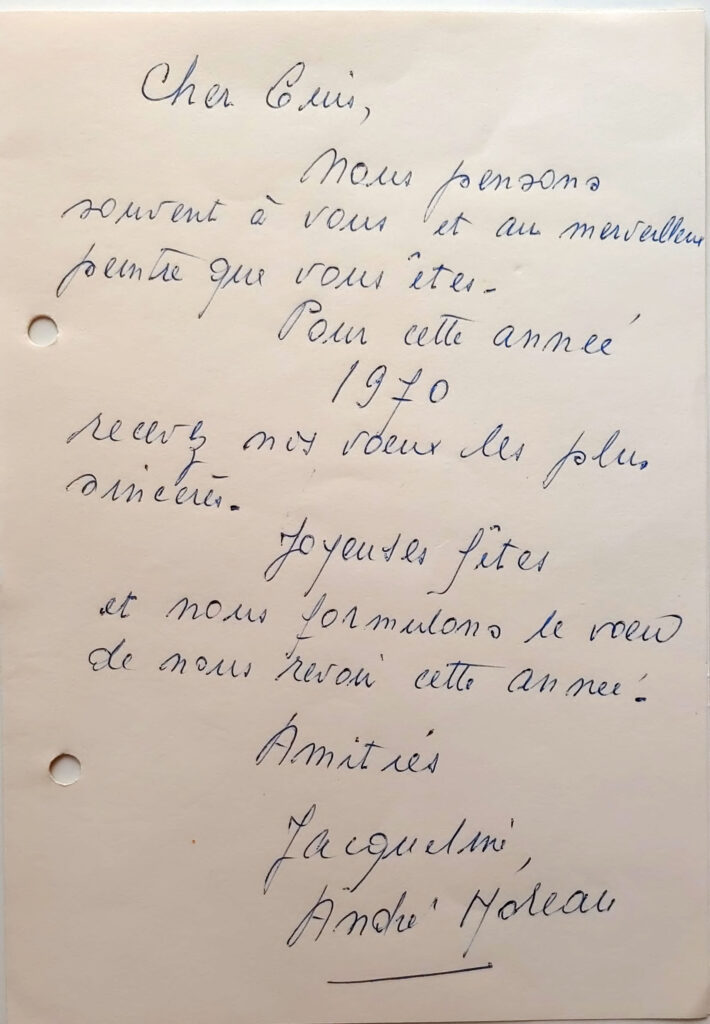 Cher
Nous pensons
souvent à vous et au merveilleux
peintre que vous êtes.
Pour cette année
1970
recevez nos voeux les plus
sincères.
Joyeuses fêtes
et nous formulons le voeu
de nous revoir cette année.
Amitiés
Jacqueline,
André Moreau